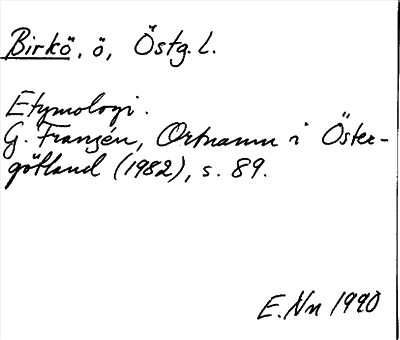 Birkö, ö, Östg. l.
Etymologi.
G. Franzén, Ortnamn i Öster-
götland (1982), s. 89.
E. Nn 1990